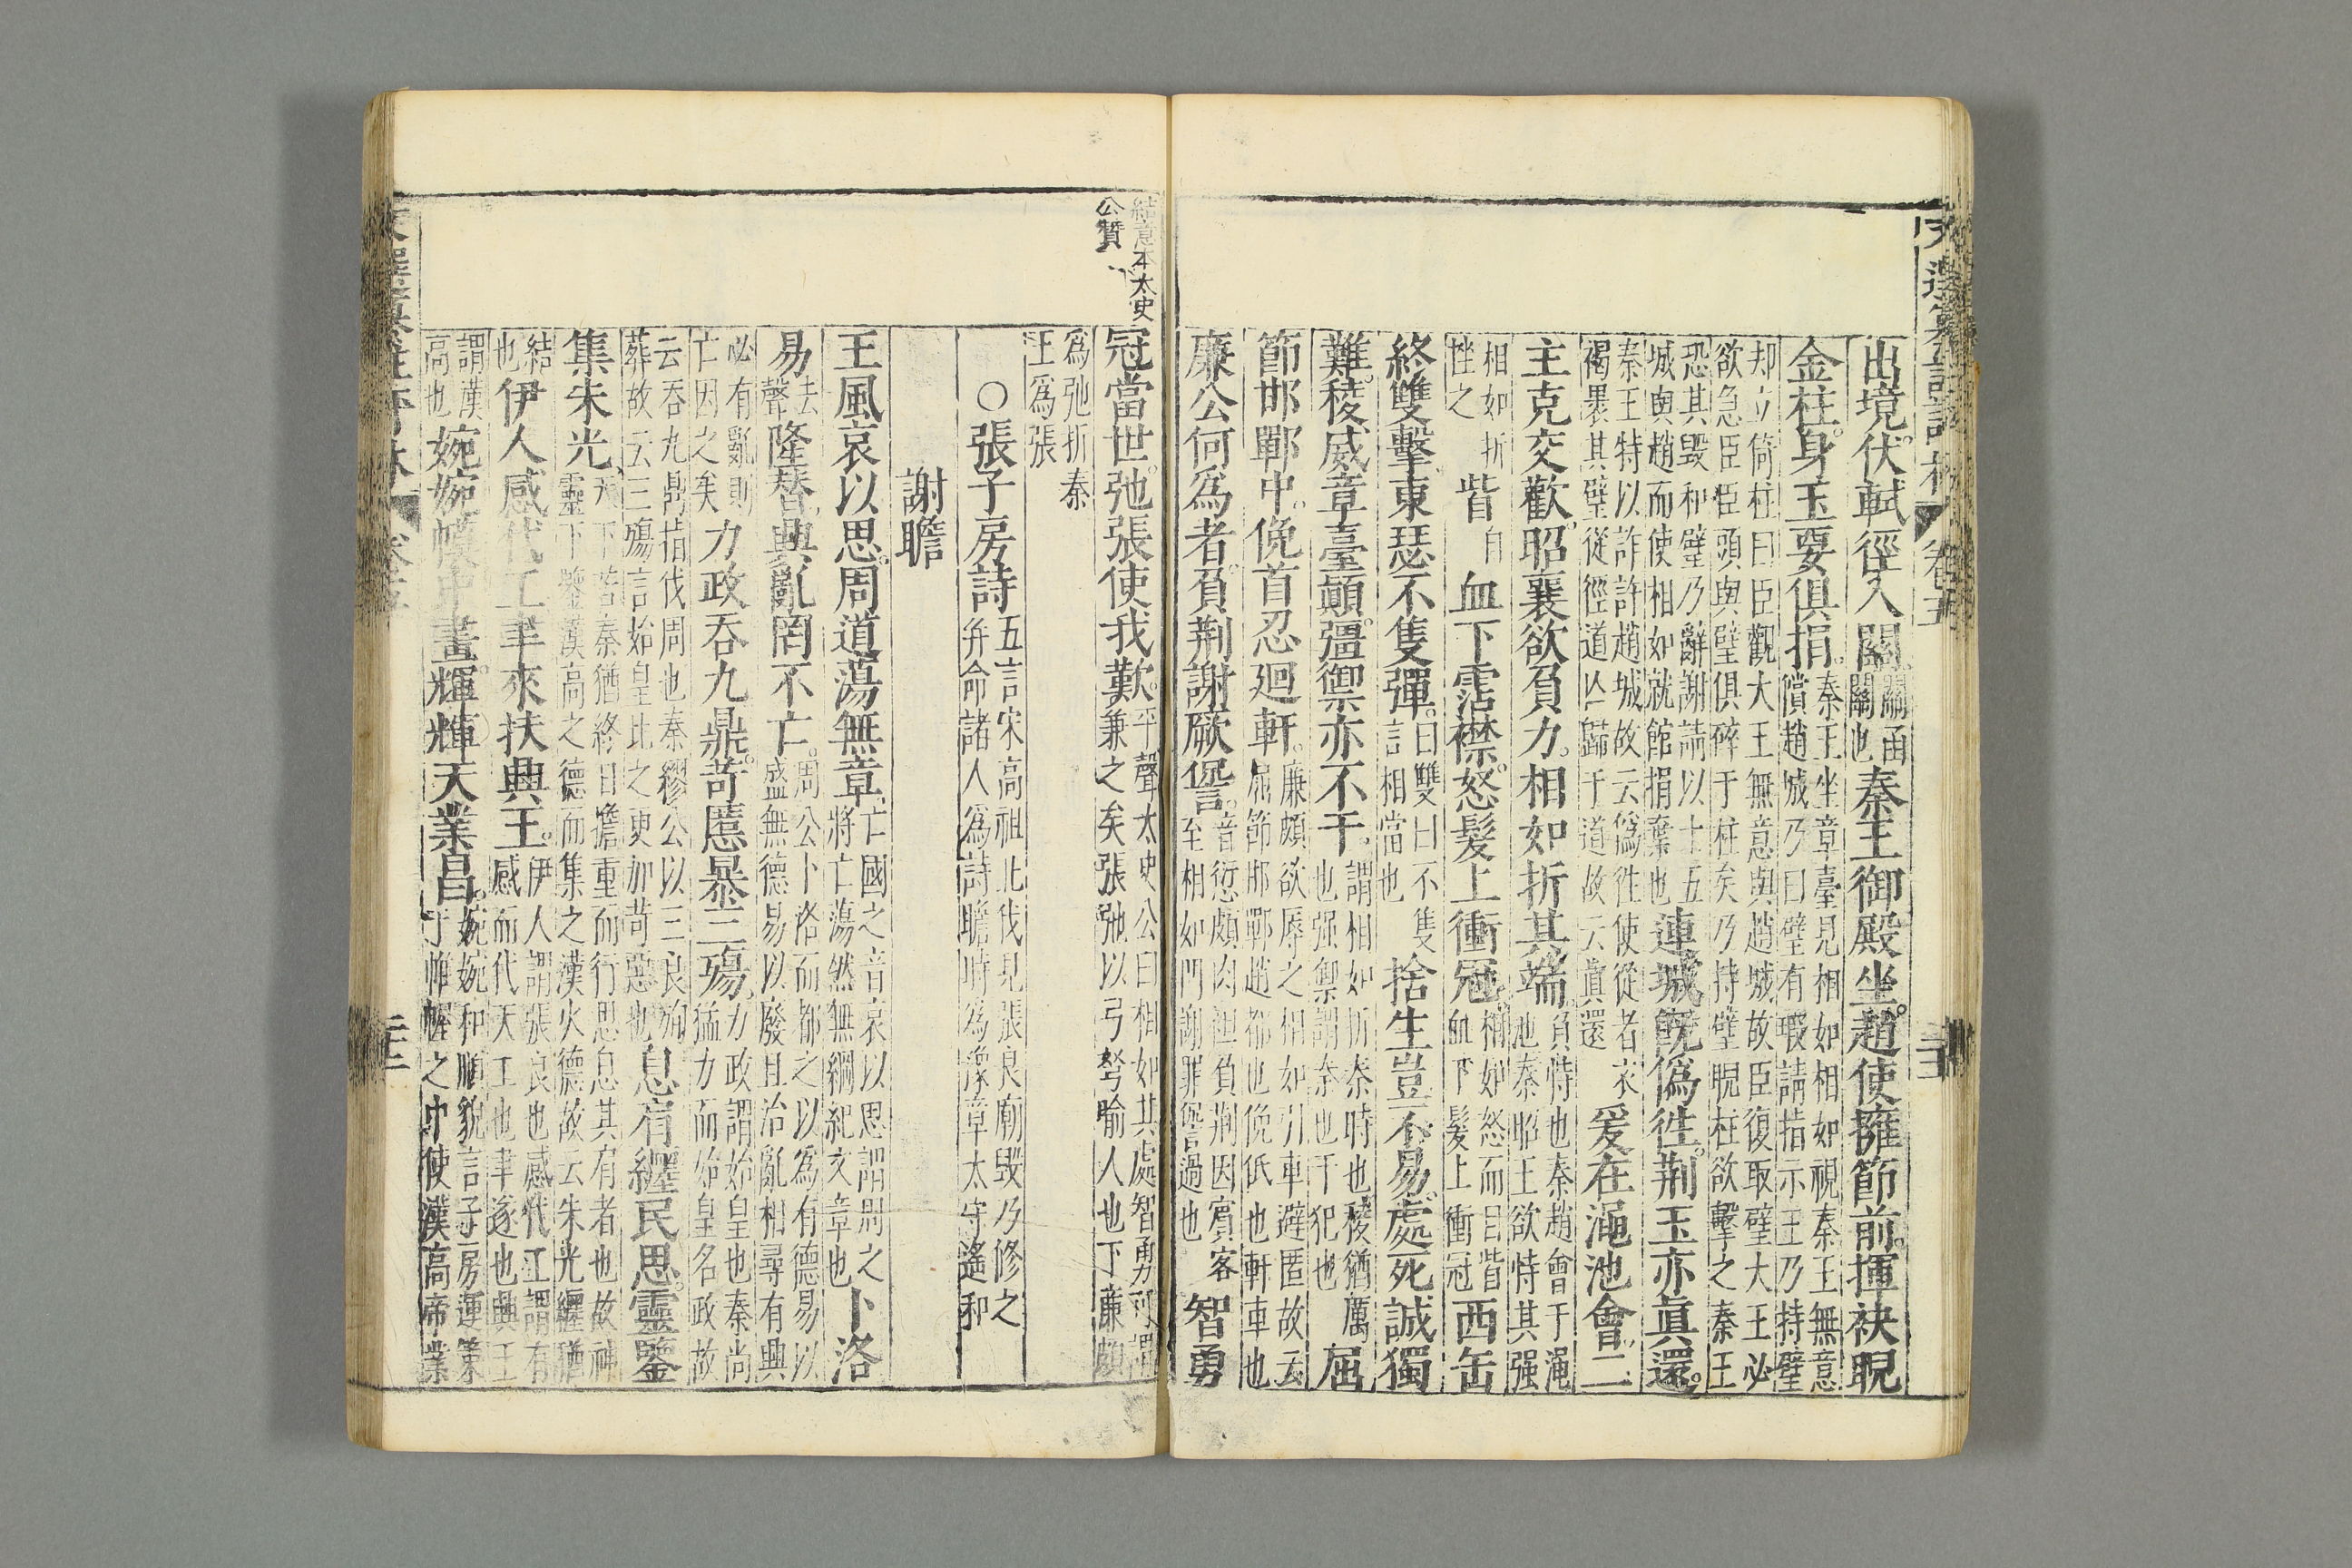 出境伏軾徑入關關函關也秦王御殿坐趙使擁節前揮袂睨
金柱身玉要俱捐秦王坐章臺見相如相如視秦王無意償趙城乃曰璧有瑕請指示王乃持璧
却立倚柱曰臣觀大王無意與趙城故臣復取璧大王必欲急臣臣頭與璧俱碎于柱矣乃持璧睨柱欲擊之秦王
恐其毀和璧乃辭謝請以十五城與趙而使相如就館捐棄也連城旣僞徃荆玉亦眞還
秦王特以詐許趙城故云僞徃使從者衣褐褁其璧從徑道亾歸于道故云眞還爰在澠池會二
主克交歡昭襄欲負力相如折其端負恃也秦趙會于澠池秦昭王欲恃其强
相如折挫之眥自血下霑襟怒髮上衝冠相如怒而目眥血下髮上衝冠西缶
終雙擊東瑟不隻彈曰雙曰不隻言相當也捨生豈不易處死誠獨
難稜威章臺顚彊禦亦不干謂相如折秦時也稜猶厲也强禦謂秦也干犯也屈
節邯鄲中俛首忍廻軒廉頗欲辱之相如引車避匿故云屈節邯鄲趙都也俛低也軒車也
廉公何爲者負荆謝厥諐音愆頗肉袒負荆因賓客至相如門謝罪諐過也智勇
結意本太史公贊
冠當世弛張使我歎平聲太史公曰相如其處智勇可謂兼之矣張弛以弓弩喻人也下廉頗
爲弛折秦王爲張
○張子房詩五言宋高祖北伐見張良廟毀乃修之并命諸人爲詩瞻時爲豫章太守遙和
謝瞻
王風哀以思周道蕩無章亡國之音哀以思謂周之將亡蕩然無綱紀文章也卜洛
易去聲隆替興亂罔不亡周公卜洛而都之以爲有德易以盛無德易以廢且治亂相尋有興
必有亂則亡因之矣力政吞九鼎苛慝暴三殤力政謂始皇也秦尚猛力而始皇名政故
云吞九鼎指伐周也秦繆公以三良殉葬故云三殤言始皇比之更加苛慝也息肩纏民思靈鑒
集朱光天下苦秦猶終日擔重而行思息其肩者也故神靈下鑒漢高之德而集之漢火德故云朱光纏猶
結也伊人感代工聿來扶興王伊人謂張良也感代工謂有感而代天工也聿遂也興王
謂漢高也婉婉幙中畫輝輝天業昌婉婉和順貌言子房運策于帷幄之中使漢高帝業